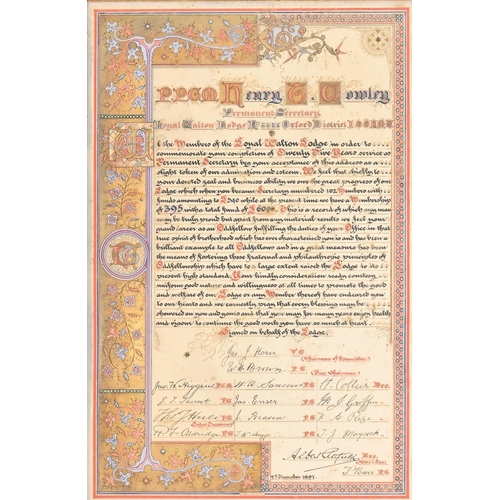 P.P.G.M. Henry T. Cowley
Permanent Secretary
Loyal Walton Lodge Oxford District I.O.O.F.M.U.
We the Members of the Loyal Walton Lodge in order to
commemorate your completion of Twenty Five Years service as
Permanent Secretary beg your acceptance of this address as a
slight token of our admiration and esteem We feel that chiefly to
your devoted zeal and business ability we owe the great progress of our
Lodge which when you became Secretary numbered 102 Members with
funds amounting to £540 while at the present time we have a Membership
of 395 with total fund of This is a record of which any man
may be truly proud but apart from any material results we feel your
grand career as an Oddfellow fulfilling the duties of your Office in that
true spirit of brotherhood which has ever characterised you is and has been a
brilliant example to all Oddfellows and in a great measure has been
the means of fostering those fraternal and philanthropic principles of
Oddfellowship which have to a large extent raised the Lodge to its
present high standard. Your kindly consideration ready courtesy
uniform good nature and willingness at all times to promote the good
and welfare of our Lodge or any Member thereof have endeared you
to our hearts and we earnestly pray that every blessing may be
showered on you and yours and that you may for many years enjoy health
and vigour to continue the good work you have so much at heart
Signed on behalf of the Lodge.
Geo. J. Horn P.G.
Chairman of Committee
W. E. Brown P.G.
Vice Chairman
Jno. W. Higgins P.G. H. A. Sansom P.G. Collier Bro.
P.G. Jas. Enser P.G. J. Griffin P.G.
P.G. J. Beavin P.G. P.G.
Aldridge P.G. P.G. T. J. Maycock P.G.
Albert Bro.
T. Barr P.G.
December